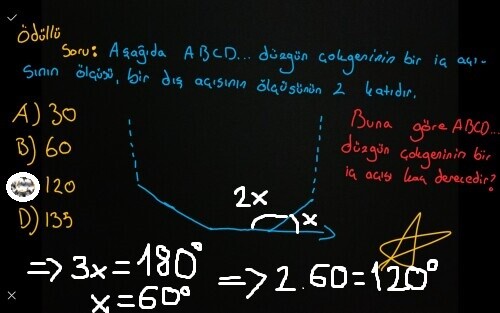 Ödüllü
Soru: Aşağıda ABCD... düzgün çokgeninin bir iç açı-
sının ölçüsü, bir dış açısının ölçüsünün 2 katıdır.
A) 30
B) 60
120
D) 135
Buna göre ABCD...
düzgün çokgeninin bir
iç açısı kaç derecedir?
2x
x
=> 3x = 180°
x = 60°
=> 2.60 = 120°